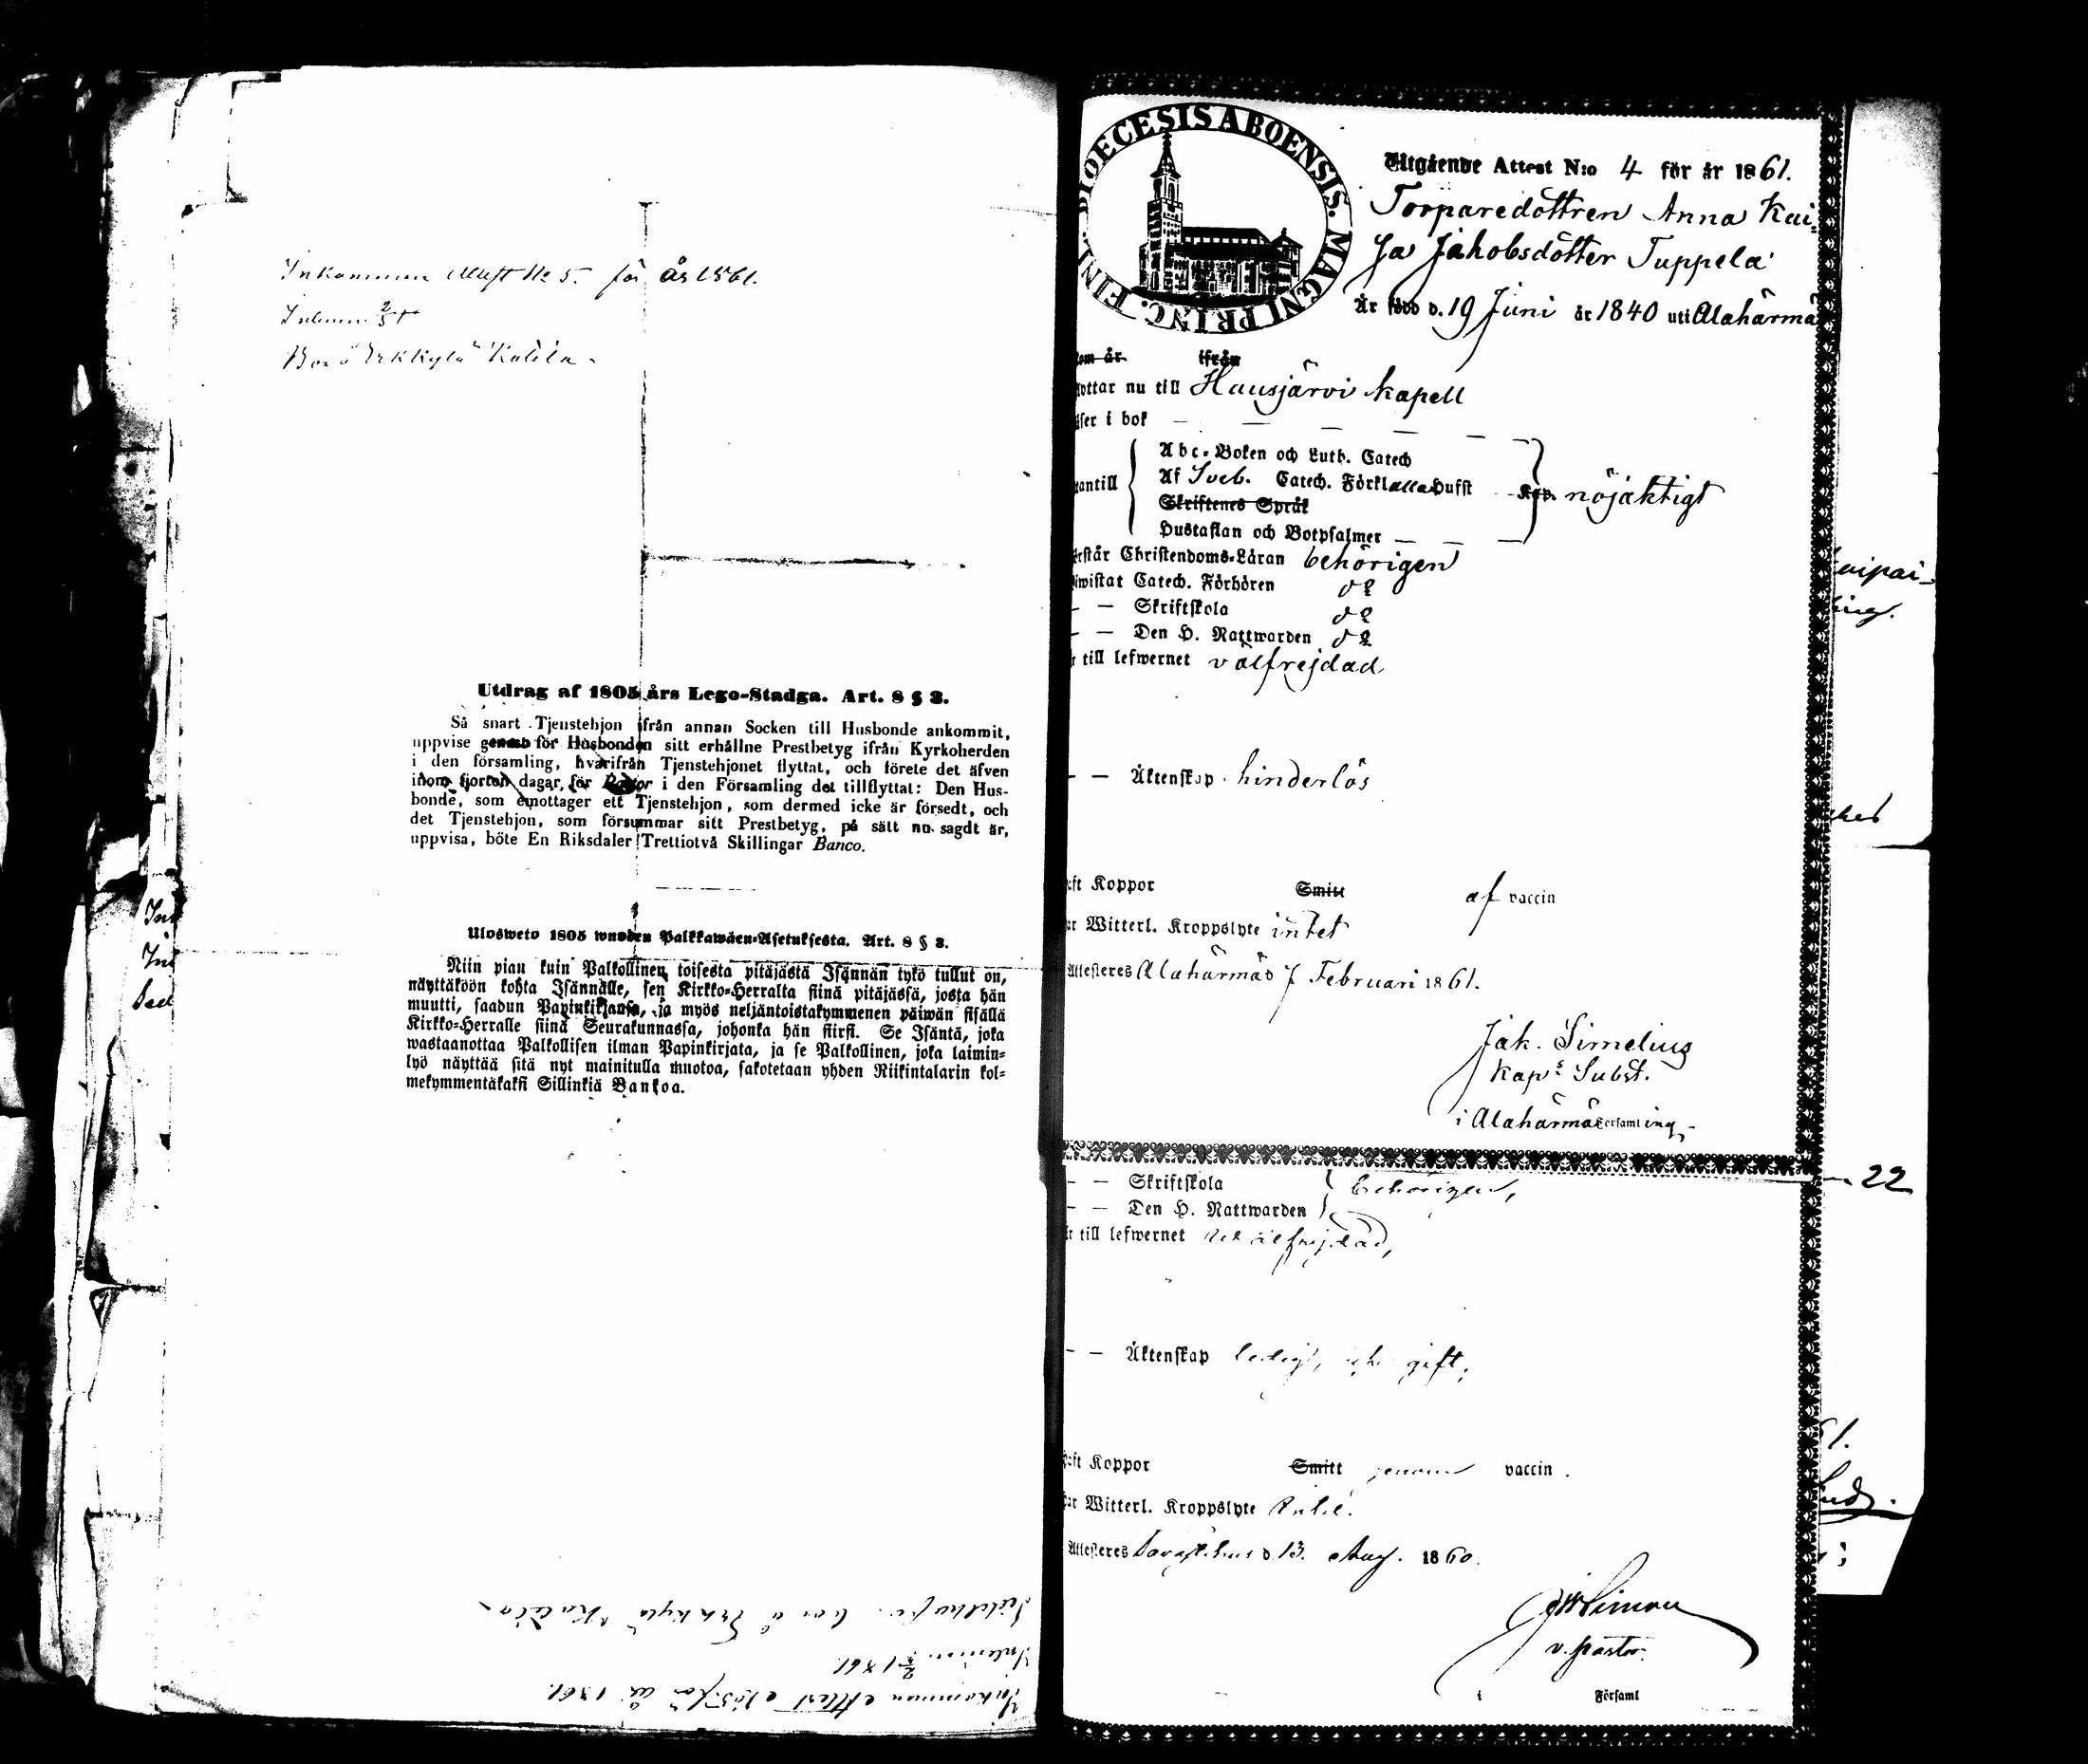 Inkommen Attest No 5. för år 1861.
Inlemn. 2/5
Bor å Erkkylä Kalela

Utdrag af 1805 års Lego-Stadga. Art. 8 § 3.
Så snart Tjenstehjon ifrån annan Socken till Husbonde ankommit,
uppvise genast för Husbonden sitt erhållne Prestbetyg ifrån Kyrkoherden
i den församling, hvarifrån Tjenstehjonet flyttat, och förete det äfven
inom fjorton dagar, för Pastor i den Församling det tillflyttat: Den Hus-
bonde, som emottager ett Tjenstehjon, som dermed icke är försedt, och
det Tjenstehjon, som försummar sitt Prestbetyg, på sätt nu sagdt är,
uppvisa, böte En Riksdaler Trettiotvå Skillingar Banco.

Ulosweto 1805 wuoden Palkkawäen-Asetuksesta. Art. 8 § 3.
Niin pian kuin Palkollinen toisesta pitäjästä Isännän tykö tullut on,
näyttäköön kohta Isännälle, sen Kirkko-Herralta siinä pitäjässä, josta hän
muutti, saadun Papinkirjansa, ja myös neljäntoistakymmenen päiwän sisällä
Kirkko-Herralle siinä Seurakunnassa, johonka hän siirsi. Se Isäntä, joka
wastaanottaa Palkollisen ilman Papinkirjata, ja se Palkollinen, joka laimin-
lyö näyttää sitä nyt mainitulla muotoa, sakotetaan yhden Riikintalarin kol-
mekymmentäkaksi Sillinkiä Bankoa.

Inkommen Attest No 5 för år 1861.
Inlemn. 1861.
bor å Erkkylä Kalela

DIOECESIS ABOENSIS. MAGNI PRINC. FINL.
Utgående Attest N:o 4 för år 1861.
Torparedottren Anna Kai-
sa Jakobsdotter Tuppela
Är född d. 19 Juni år 1840 uti Alahärmä
kom år ifrån
flyttar nu till Hausjärvi kapell
läser i bok — — — — —
utantill
Abc-Boken och Luth. Catech
Af Sveb. Catech. Förkl alla Hufst
Skriftenes Språk
Hustaflan och Botpsalmer — — —
nöjaktigt
förstår Christendoms-Läran behörigen
biwistat Catech. Förhören d:o
— — Skriftskola d:o
— — Den H. Nattwarden d:o
är till lefwernet välfrejdad
— — Äktenskap hinderlös
haft Koppor Smitt af vaccin
har Witterl. Kroppslyte intet
Attesteres Alahärmä d 7 Februari 1861.
Jak. Simelius
Kaps Subst.
i Alahärmä Församling
— — Skriftskola
— — Den H. Nattwarden
behörigen,
är till lefwernet välfrejdad,
— — Äktenskap ledig, gift;
haft Koppor Smitt genom vaccin.
har Witterl. Kroppslyte
Attesteres Tavastehus d 13. Aug. 1860.
v. pastor.
i Församl
22